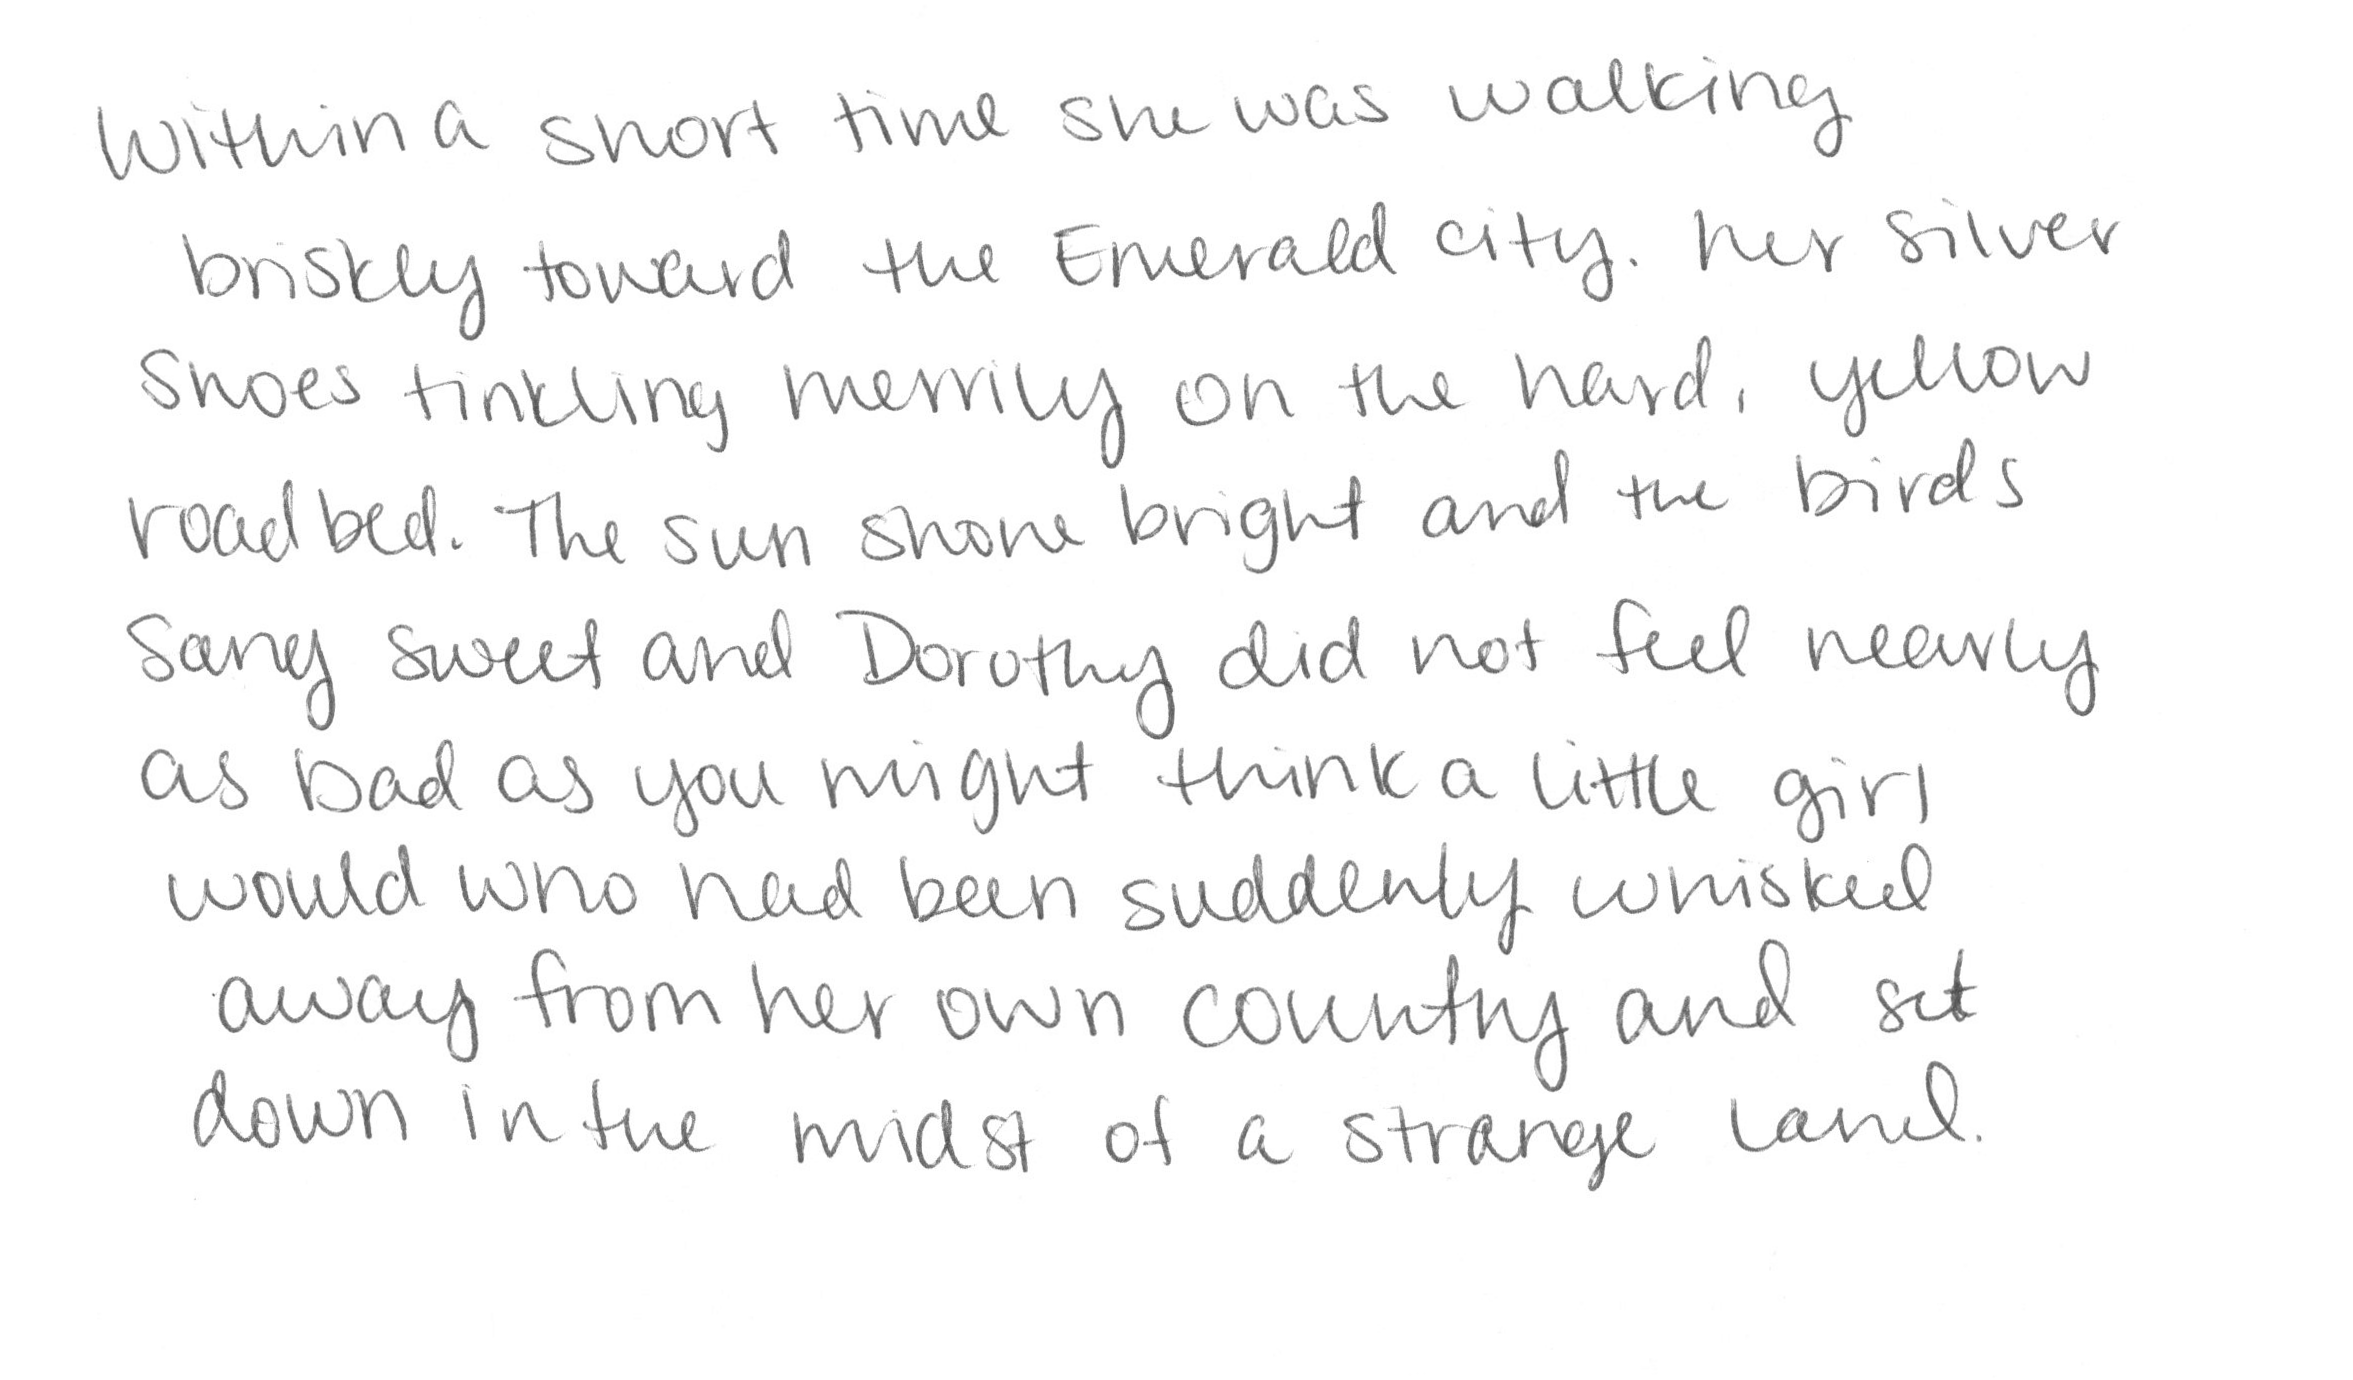 Within a short time she was walking
briskly toward the Emerald city. her silver
shoes tinkling merrily on the hard, yellow
roadbed. The sun shone bright and the birds
sang sweet and Dorothy did not feel nearly
as bad as you might think a little girl
would who had been suddenly whisked
away from her own country and set
down in the midst of a strange land.